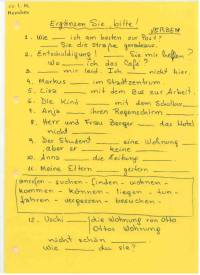 Ergänzen Sie, bitte!
VERBEN
1. Wie ___ ich am besten zur Post?
___ Sie die Straße geradeaus.
2. Entschuldigung! ___ Sie mir helfen?
Wo ___ ich das Café?
3. ___ mir leid. Ich ___ nicht hier.
4. Markus ___ im Stadtzentrum
5. Lisa ___ mit dem Bus zur Arbeit.
6. Die Kind ___ mit dem Schulbus.
7. Anja ___ ihren Regenschirm.
8. Herr und Frau Berger ___ das Hotel
nicht
9. Der Student ___ eine Wohnung
aber er ___ keine
10. Anna ___ die Zeitung
11. Meine Eltern ___ gestern
anrufen - suchen - finden - wohnen -
kommen - können - liegen - tun -
fahren - vergessen - besuchen -
12. Uschi ___ die Wohnung von Otto
Ottos Wohnung
nicht schön
Wie ___ du sie?